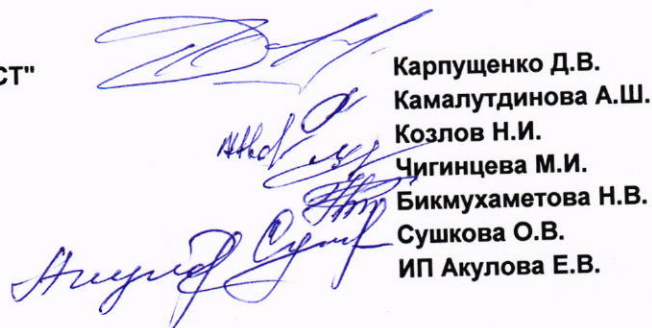 СТ"
Карпущенко Д.В.
Камалутдинова А.Ш.
Козлов Н.И.
Чигинцева М.И.
Бикмухаметова Н.В.
Сушкова О.В.
ИП Акулова Е.В.